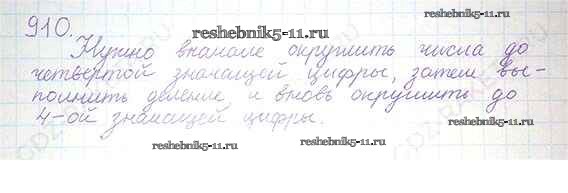 910.
reshebnik5-11.ru
Нужно вначале округлить числа до
четвертой значащей цифры, затем вы-
полнить деление и вновь округлить до
4-ой значащей цифры.
reshebnik5-11.ru
reshebnik5-11.ru